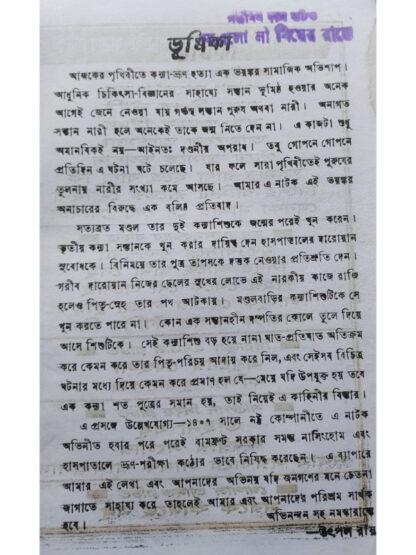 সঞ্জীবন দাস রচিত
এলো না বিয়ের রাতে
ভূমিকা
আজকের পৃথিবীতে কন্যা-ভ্রূণ হত্যা এক ভয়ঙ্কর সামাজিক অভিশাপ।
আধুনিক চিকিৎসা-বিজ্ঞানের সাহায্যে সন্তান ভূমিষ্ঠ হওয়ার অনেক
আগেই জেনে নেওয়া যায় গর্ভস্থ সন্তান পুরুষ অথবা নারী। অনাগত
সন্তান নারী হলে অনেকেই তাকে জন্ম নিতে দেন না। এ কাজটা শুধু
অমানবিকই নয়—আইনতঃ দণ্ডনীয় অপরাধ। তবু গোপনে গোপনে
প্রতিদিন এ ঘটনা ঘটে চলেছে। যার ফলে সারা পৃথিবীতেই পুরুষের
তুলনায় নারীর সংখ্যা কমে আসছে। আমার এ নাটক এই ভয়ঙ্কর
অনাচারের বিরুদ্ধে এক বলিষ্ঠ প্রতিবাদ।
সত্যব্রত মণ্ডল তার দুই কন্যাশিশুকে জন্মের পরেই খুন করেন।
তৃতীয় কন্যা সন্তানকে খুন করার দায়িত্ব দেন হাসপাতালের দারোয়ান
সুবোধকে। বিনিময়ে তার পুত্র তাপসকে দত্তক নেওয়ার প্রতিশ্রুতি দেন।
গরীব দারোয়ান নিজের ছেলের সুখের লোভে এই নারকীয় কাজে রাজি
হলেও পিতৃ-স্নেহ তার পথ আটকায়। মণ্ডলবাড়ির কন্যাশিশুটিকে সে
খুন করতে পারে না। কোন এক সন্তানহীন দম্পতির কোলে তুলে দিয়ে
আসে শিশুটিকে। সেই কন্যাশিশু বড় হয়ে নানা ঘাত-প্রতিঘাত অতিক্রম
করে কেমন করে তার পিতৃ-পরিচয় আদায় করে নিল, এবং সেইসব বিচিত্র
ঘটনার মধ্যে দিয়ে কেমন করে প্রমাণ হল যে—মেয়ে যদি উপযুক্ত হয় তবে
এক কন্যা শত পুত্রের সমান হয়, তাই নিয়েই এ কাহিনীর বিস্তার।
এ প্রসঙ্গে উল্লেখযোগ্য—১৪০৭ সালে নট্ট কোম্পানীতে এ নাটক
অভিনীত হবার পরে পরেই বামফ্রন্ট সরকার সমস্ত নার্সিংহোম এবং
হাসপাতালে ভ্রূণ-পরীক্ষা কঠোর ভাবে নিষিদ্ধ করেছেন। এ ব্যাপারে
আমার এই লেখা এবং আপনাদের অভিনয় যদি জনগণের মনে চেতনা
জাগাতে সাহায্য করে তাহলেই আমার এবং আপনাদের পরিশ্রম সার্থক
হবে।
অভিনন্দন সহ নমস্কারান্তে
উৎপল রায়